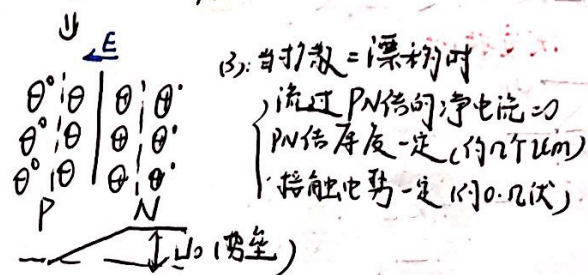 E
(3):当扩散=漂移时
流过PN结的净电流=0
PN结厚度一定(约几个um)
接触电势一定(约0.几伏)
P N
U₀(势垒)